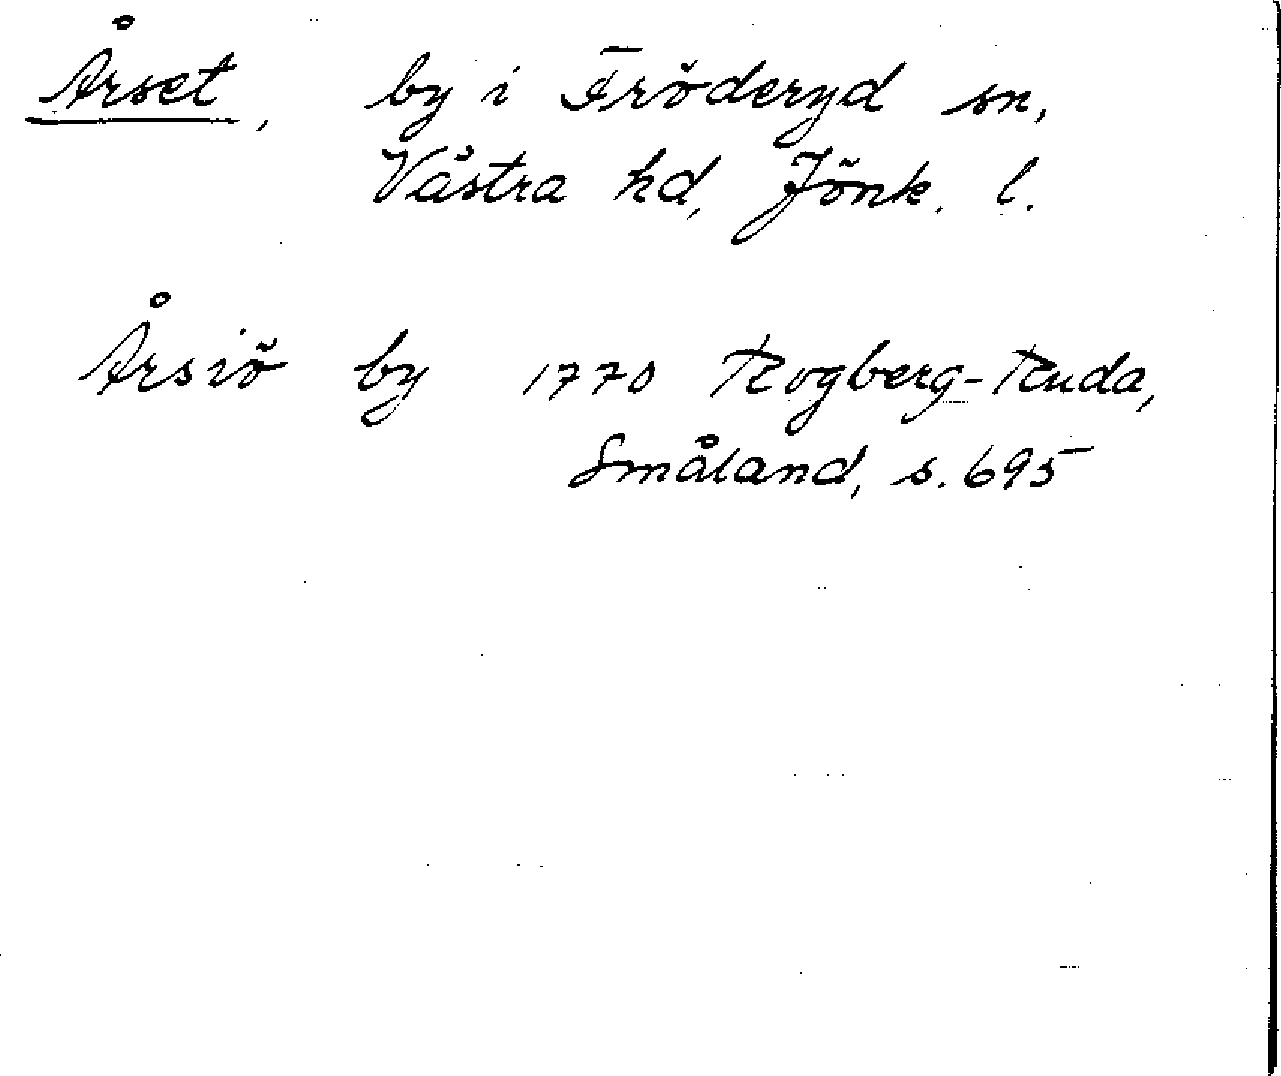 Årset, by i Fröderyd sn,
Västra hd, Jönk. l.
Årsiö by 1770 Rogberg-Ruda,
Småland, s. 695